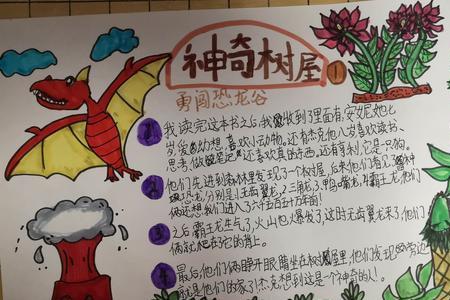 神奇树屋1
勇闯恐龙谷
1 我读完这本书之后我收到了里面有,安妮她七
岁,爱幻想,喜欢小动物。还有杰克他八岁喜欢读书、
思考,做笔记,还喜欢真的东西。还有亨利,它是只狗。
2 他们先进到森林里发现了一个树屋,后来他们看见了
恐龙,分别是1无齿翼龙,2三角龙,3鸭嘴龙,4霸王龙,他们
俩还想我们进入了个六千五百五十万年前!
3 之后霸王龙生气了,火山也爆发了,这时无齿翼龙来了,他们
俩就把在它的背上。
4 最后他们俩睁开眼睛坐在树屋里,他们发现旁边
就是他们的家了!杰克想到这是个神奇的人!